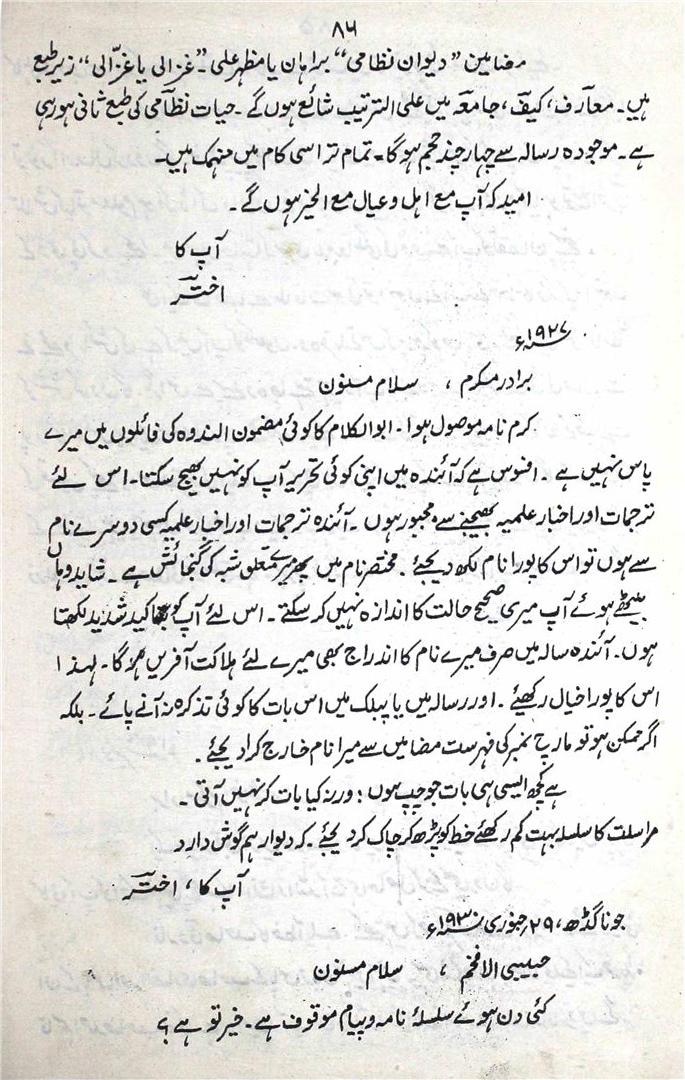 ۸۶
مضامین ”دیوان نظامی“ برہان یا مظہر علی۔ ”غزالی یا غزّالی“ زیر طبع
ہیں۔ معارف، کیف، جامعہ میں علی الترتیب شائع ہوں گے۔ حیات نظامی کی طبع ثانی ہو رہی
ہے۔ موجودہ رسالہ سے چہار چند حجم ہوگا۔ تمام تر اسی کام میں منہمک ہیں۔
امید کہ آپ مع اہل و عیال مع الخیر ہوں گے۔
آپ کا
اختر
۱۹۲۷ء
برادر مکرم ، سلام مسنون
کرم نامہ موصول ہوا۔ ابوالکلام کا کوئی مضمون الندوہ کی فائلوں میں میرے
پاس نہیں ہے۔ افسوس ہے کہ آئندہ میں اپنی کوئی تحریر آپ کو نہیں بھیج سکتا۔ اس لئے
ترجمات اور اخبار علمیہ بھیجنے سے مجبور ہوں۔ آئندہ ترجمات اور اخبار علمیہ کسی دوسرے نام
سے ہوں تو اس کا پورا نام لکھ دیجئے۔ مختصر نام میں پھر میرے متعلق شبہ کی گنجائش ہے۔ شاید وہاں
بیٹھے ہوئے آپ میری صحیح حالت کا اندازہ نہیں کر سکتے۔ اس لئے آپ کو بتاکید شدید لکھتا
ہوں۔ آئندہ رسالہ میں صرف میرے نام کا اندراج بھی میرے لئے ہلاکت آفریں ہوگا۔ لہذا
اس کا پورا خیال رکھیئے۔ اور رسالہ میں یا پبلک میں اس بات کا کوئی تذکرہ نہ آنے پائے۔ بلکہ
اگر ممکن ہو تو مارچ نمبر کی فہرست مضامیں سے میرا نام خارج کرا دیجئے۔
ہے کچھ ایسی ہی بات جو چپ ہوں ؛ ورنہ کیا بات کر نہیں آتی۔
مراسلت کا سلسلہ بہت کم رکھئے خط کو پڑھ کر چاک کر دیجئے۔ کہ دیوار ہم گوش دارد
آپ کا ، اختر
جوناگڈھ، ۲۹؍ جنوری ۱۹۳۰ء
حبیبی الافخم ، سلام مسنون
کئی دن ہوئے سلسلۂ نامہ و پیام موقوف ہے۔ خیر تو ہے؟